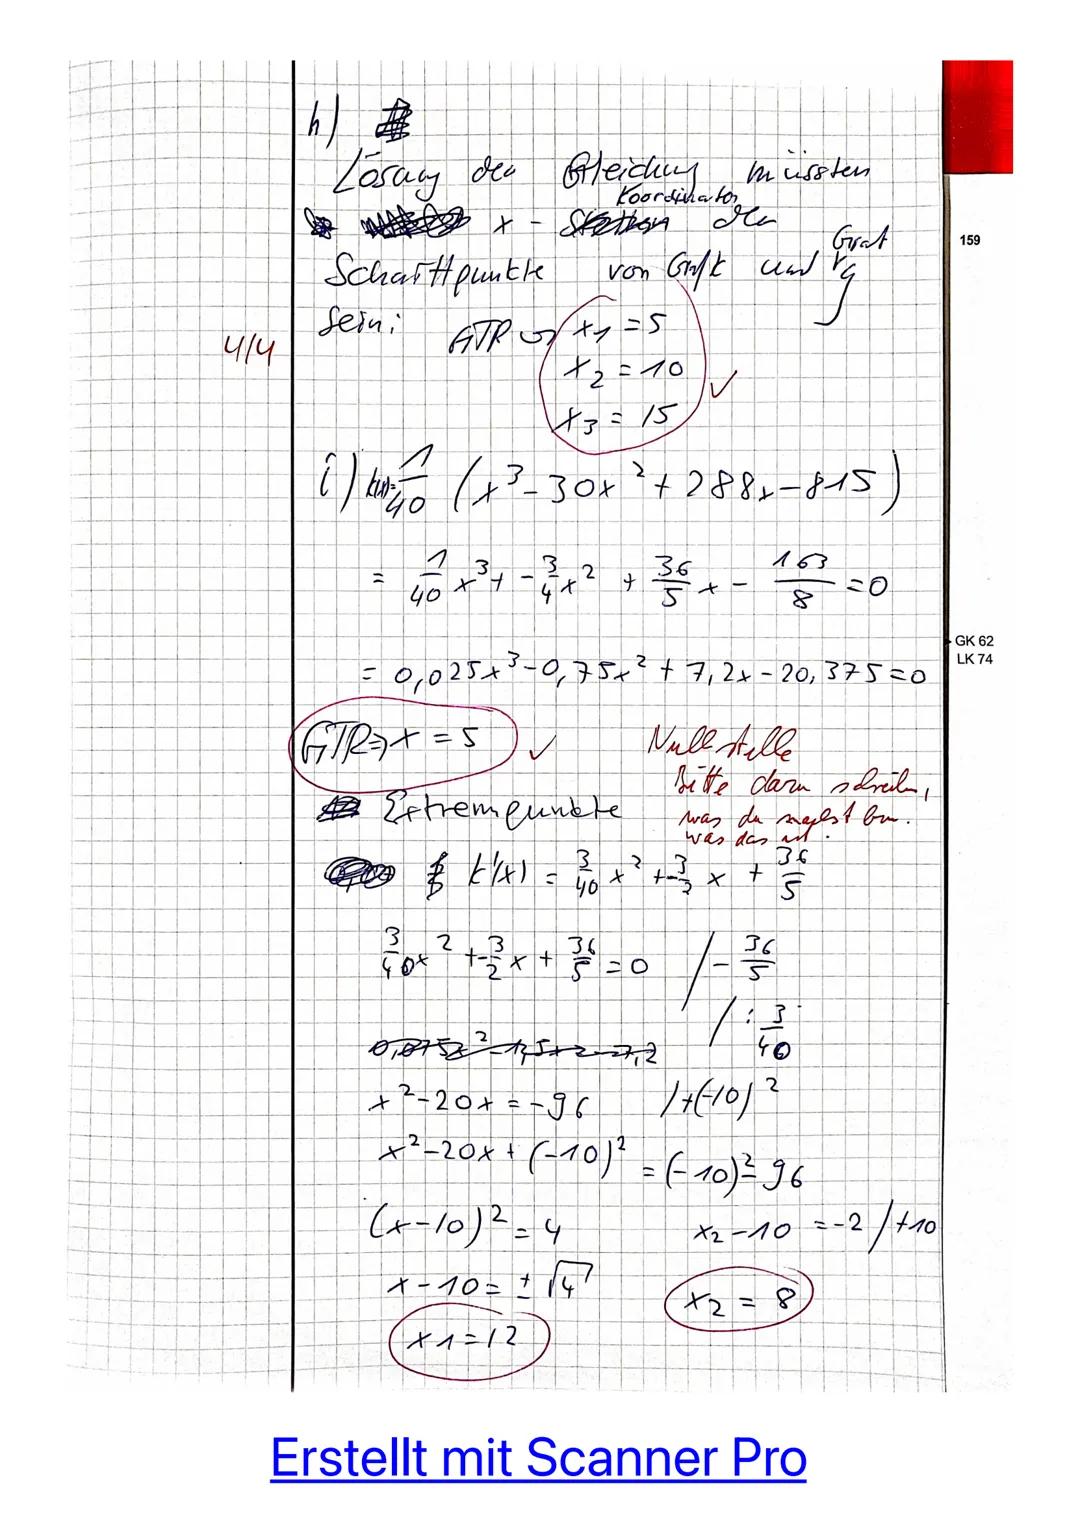 h)
Lösung der Gleichung müssten
Koordinaten
x - der
Schnittpunkte von Gf/k und Graf g
sein:
GTR => x1 = 5
4/4
x2 = 10 ✓
x3 = 15
159
i) k(x)= 1/40 (x³-30x²+288x-815)
= 1/40 x³ + -3/4 x² + 36/5 x - 163/8 = 0
GK 62
LK 74
= 0,025x³-0,75x²+7,2x-20,375=0
GTR => x = 5 ✓
Nullstelle
Bitte dazu schreiben,
was du machst bzw.
was das ist.
Extrempunkte
k'(x) = 3/40 x² + -3/2 x + 36/5
3/40 x² + -3/2 x + 36/5 = 0 /- 36/5
/: 3/40
0,075x²-1,5x=-7,2
x²-20x = -96 /+(-10)²
x²-20x+(-10)² = (-10)²-96
(x-10)² = 4
x2-10 = -2 /+10
x-10 = ±√4
x2 = 8
x1=12
Erstellt mit Scanner Pro